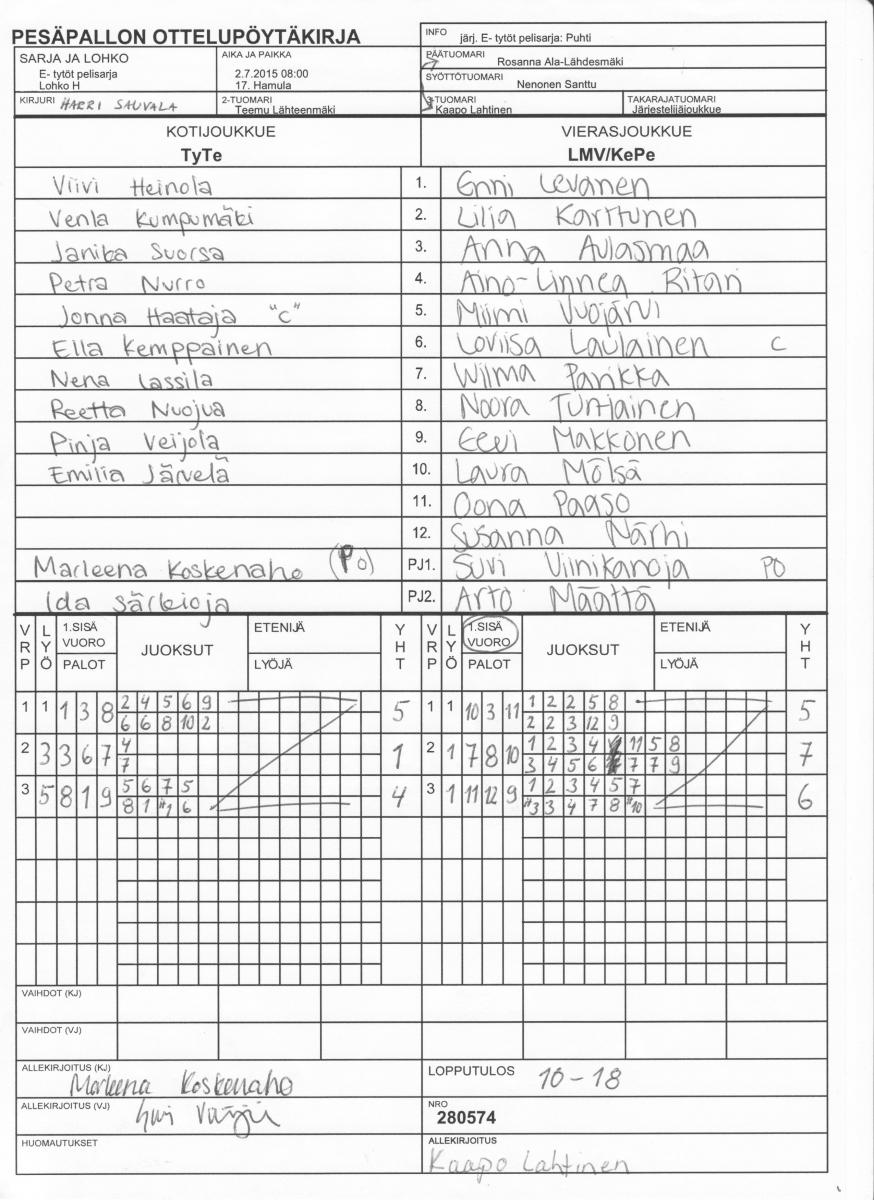 PESÄPALLON OTTELUPÖYTÄKIRJA
INFO järj. E- tytöt pelisarja: Puhti
SARJA JA LOHKO
E- tytöt pelisarja
Lohko H
AIKA JA PAIKKA
2.7.2015 08:00
17. Hamula
PÄÄTUOMARI Rosanna Ala-Lähdesmäki
SYÖTTÖTUOMARI Nenonen Santtu
KIRJURI HARRI SAUVALA
2-TUOMARI Teemu Lähteenmäki
3-TUOMARI Kaapo Lahtinen
TAKARAJATUOMARI Järjestelijäjoukkue
KOTIJOUKKUE VIERASJOUKKUE
TyTe LMV/KePe
Viivi Heinola 1. Enni Levänen
Venla Kumpumäki 2. Lilja Karttunen
Janika Suorsa 3. Anna Aulasmaa
Petra Nurro 4. Aino-Linnea Ritari
Jonna Haataja "C" 5. Miimi Vuojärvi
Ella Kemppainen 6. Loviisa Laulainen C
Nena Lassila 7. Wilma Parikka
Reetta Nuojua 8. Noora Tuntiainen
Pinja Veijola 9. Eevi Makkonen
Emilia Järvelä 10. Laura Mölsä
11. Oona Paaso
12. Susanna Närhi
Marleena Koskenaho (PO) PJ1. Suvi Viinikanoja PO
Ida Särkioja PJ2. Arto Määttä
VRP LYÖ 1.SISÄ VUORO PALOT JUOKSUT ETENIJÄ LYÖJÄ YHT VRP LYÖ 1.SISÄ VUORO PALOT JUOKSUT ETENIJÄ LYÖJÄ YHT
1 1 1 3 8 2 4 5 6 9 5 1 1 10 3 11 1 2 2 5 8 5
6 6 8 10 2 2 2 3 12 9
2 3 3 6 7 4 1 2 1 7 8 10 1 2 3 4 11 5 8 7
7 3 4 5 6 7 7 9
3 5 8 1 9 5 6 7 5 4 3 1 11 12 9 1 2 3 4 5 7 6
8 1 #1 6 #3 3 4 7 8 #10
VAIHDOT (KJ)
VAIHDOT (VJ)
ALLEKIRJOITUS (KJ) Marleena Koskenaho
LOPPUTULOS 10-18
ALLEKIRJOITUS (VJ)
NRO 280574
HUOMAUTUKSET
ALLEKIRJOITUS Kaapo Lahtinen